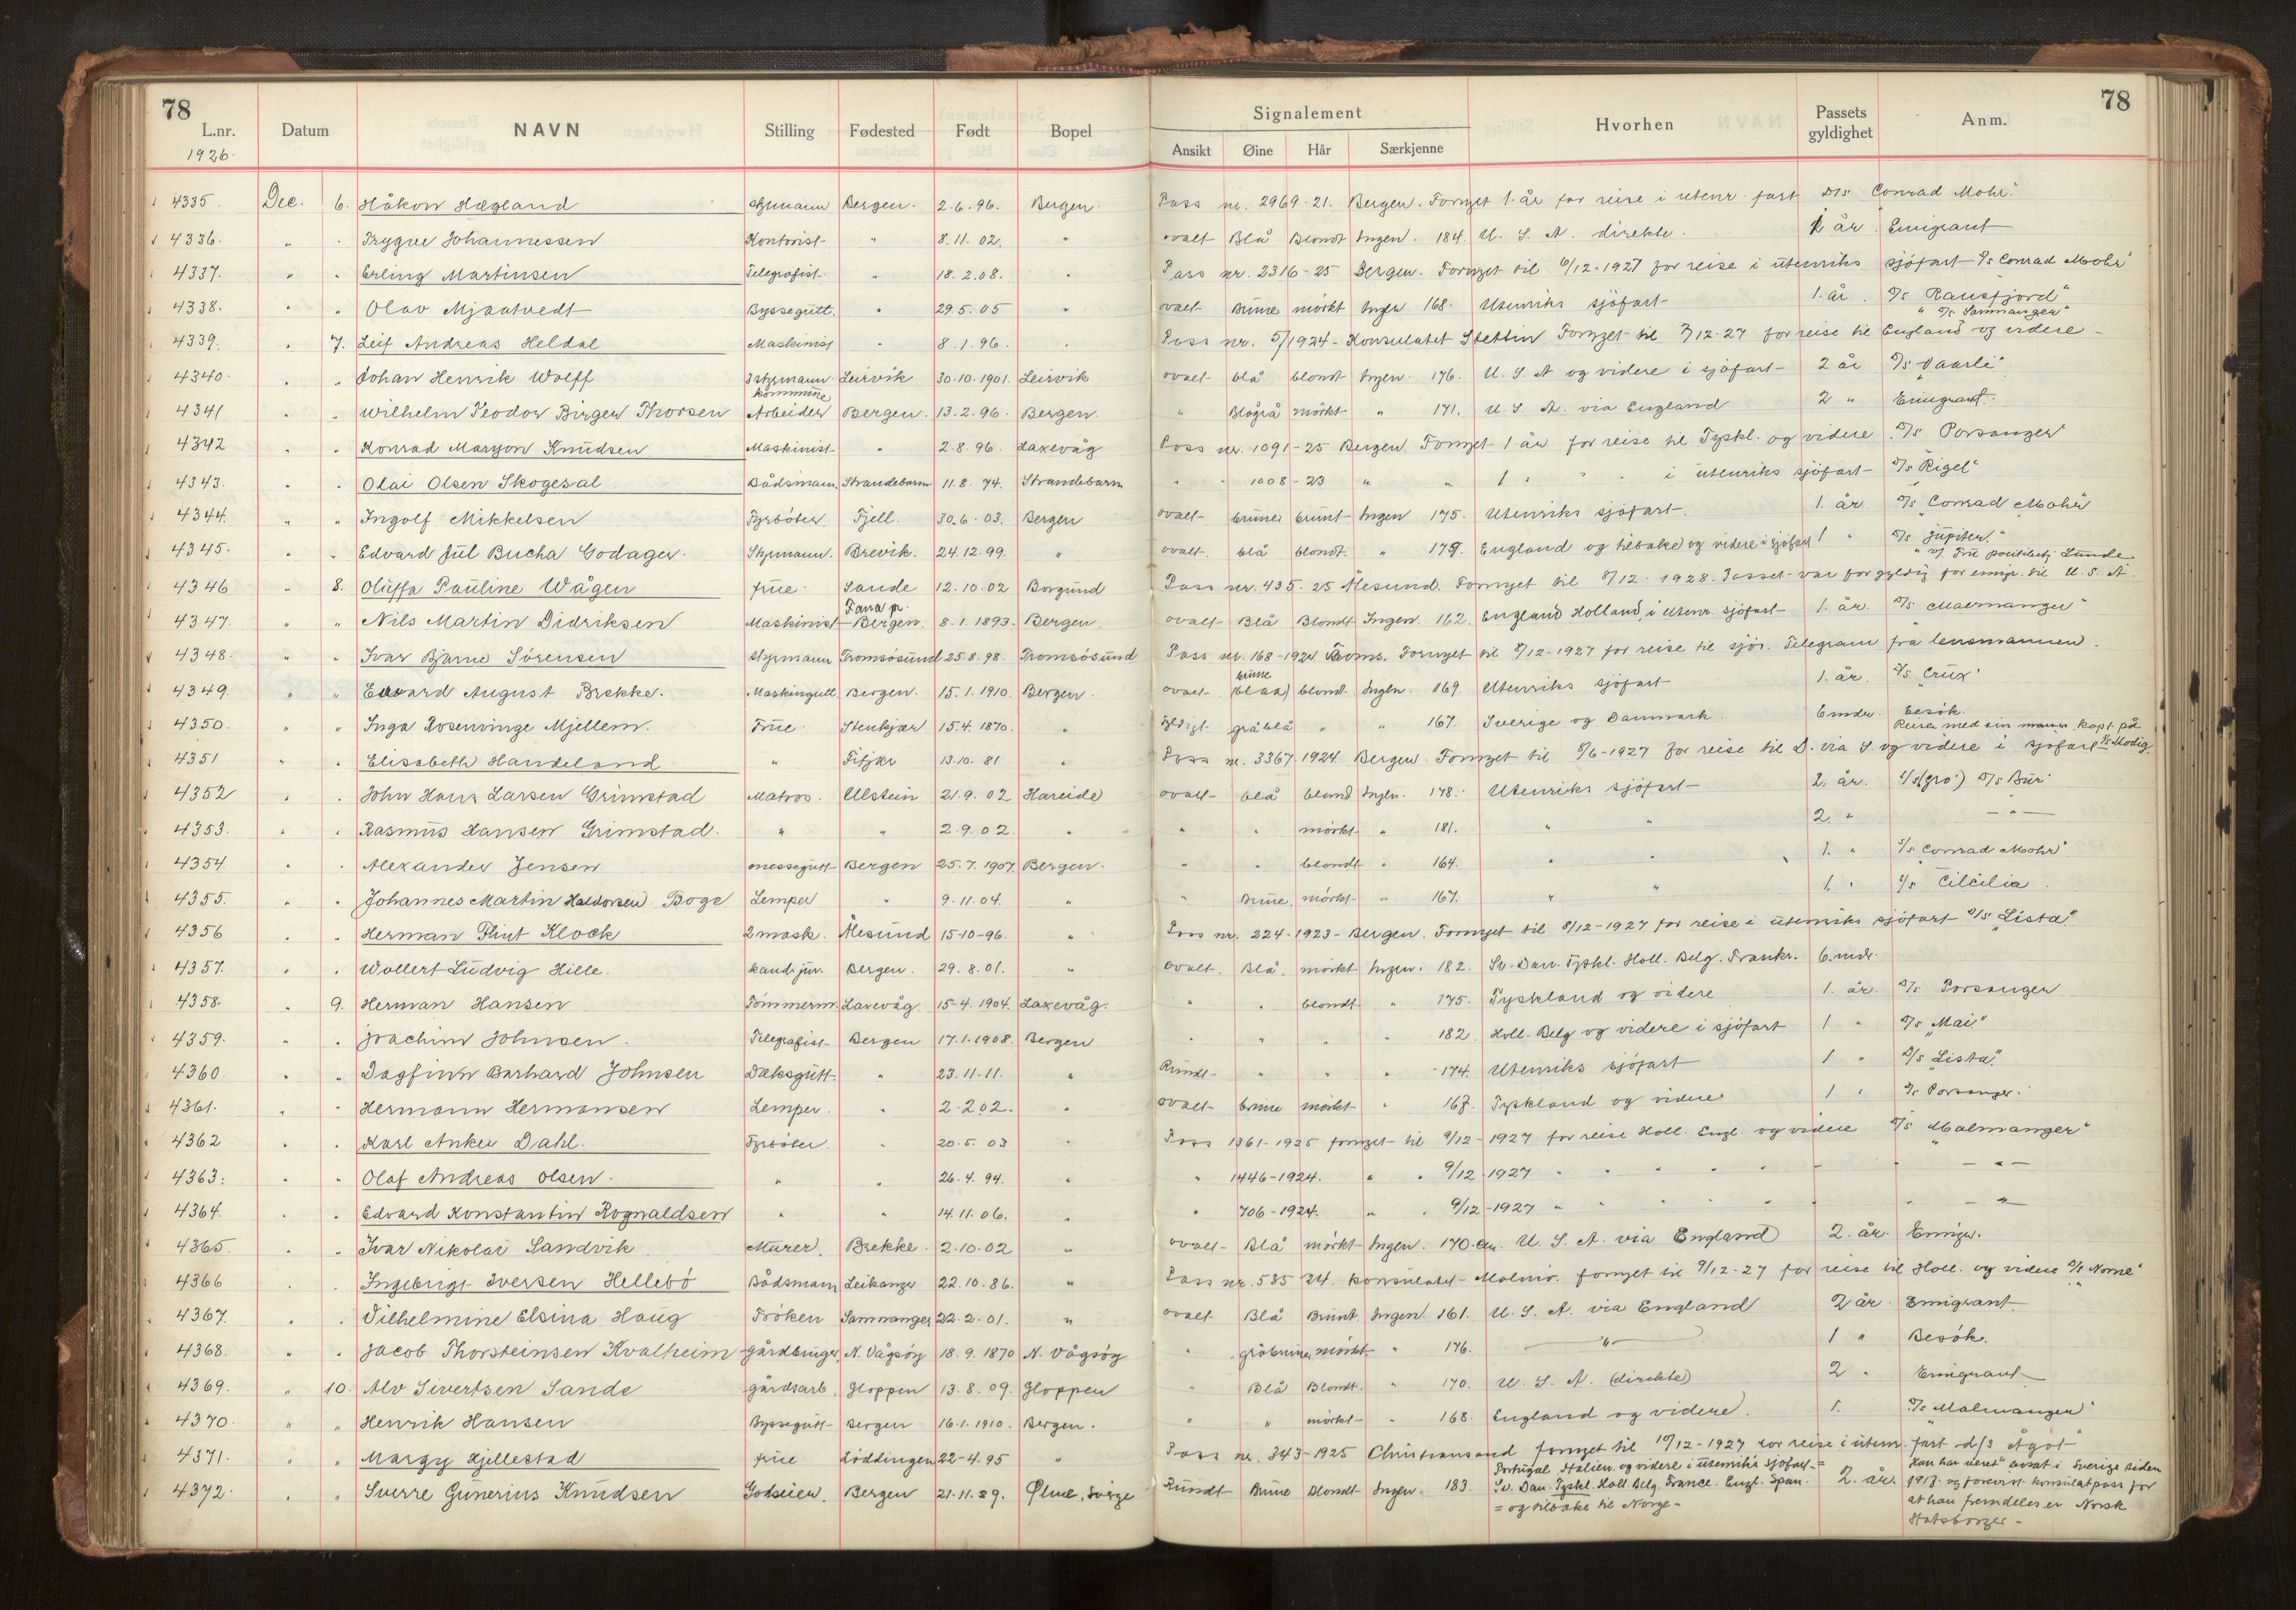 78
78
L.nr. Datum NAVN Stilling Fødested Født Bopel Signalement Hvorhen Passets gyldighet Anm.
1926. Ansikt Øine Hår Særkjenne
4335. Dec. 6. Håkon Hægland styrmann Bergen. 2.6.96. Bergen. Pass nr. 2969-21. Bergen. Fornyet 1. år for reise i utenr. fart D/s "Conrad Mohr"
4336. " . Trygve Johannessen Kontorist " 8.11.02. " ovalt Blå Blondt Ingen. 184. U. S. A. direkte. 1 år Emigrant
4337. " " Erling Martinsen Telegrafist " 18.2.08. " Pass nr. 2316-25 Bergen. Fornyet til 6/12-1927 for reise i utenriks sjöfart D/s Conrad Mohr"
4338. " " Olav Mjaatvedt Byssegutt. " 29.5.05 " ovalt Brune mörkt Ingen 168. Utenriks sjöfart 1. år. D/s "Ranfjord"
" D/s Samnanger"
4339. " 7. Leif Andreas Heldal Maskinist " 8.1.96. " Pass nr. 5/1924 - Konsulatet Stettin Fornyet til 7/12-27 for reise til England og videre -
4340. " " Johan Henrik Wolff 3 styrmann Leirvik 30.10.1901. Leirvik ovalt blå blondt Ingen. 176. U. S. A og videre i sjöfart 2 år D/s "Vaarli"
4341 " " Wilhelm Teodor Birger Thorsen kommune Arbeider Bergen. 13.2.96. Bergen. " Blågrå mörkt " 171. U. S. A. via England 2 " Emigrant.
4342 " " Konrad Maryon Knudsen Maskinist " 2.8.96. Laxevåg Pass nr. 1091-25 Bergen. Fornyet 1 år for reise til Tyskl. og videre D/s Porsanger
4343. " " Olai Olsen Skogesal Bådsmann Strandebarm 11.8.74. Strandebarm " " 1008-23 " " 1 " " i utenriks sjöfart D/s "Rigel"
4344. " " Ingolf Mikkelsen Fyrböter Fjell. 30.6.03. Bergen ovalt brune brunt Ingen 175. Utenriks sjöfart. 1. år D/s "Conrad Mohr"
4345. " " Edvard Jul Bucha Godager. Styrmann. Brevik. 24.12.99. " ovalt. blå blondt. " 179. England og tilbake og videre i sjöfart 1 " D/s "Jupiter"
4346 " 8. Oluffa Pauline Wågen frue Sande 12.10.02 Borgund Pass nr. 435.25 Ålesund. Fornyet til 8/12-1928. Passet var forgyldig for emigr. til U. S. A.
4347. " " Nils Martin Didriksen Maskinist Fana pr. Bergen. 8.1.1893. Bergen. ovalt Blå Blondt Ingen. 162. England Holland, i Utenr. sjöfart 1. år. D/s "Malmanger"
4348. " " Ivar Bjarne Sörensen styrmann Tromsösund 25.8.98. Tromsösund Pass nr. 168-1924 Troms. Fornyet til 8/12-1927 for reise til sjös. Telegram fra lensmannen.
4349. " " Edvard August Brekke. Maskingutt Bergen. 15.1.1910. Bergen. ovalt brune (blaa) blondt Ingen. 169. Utenriks sjöfart 1. år. D/s "Crux"
4350. " " Inga Rosenvinge Mjellem. Frue Stenkjær 15.4.1870. " gråblå " " 167. Sverige og Danmark 6 mdr. Besök.
Reiser med sin mann, kapt. på
4351 " " Elisabeth Handeland " Fitjar 13.10.81 " Pass nr. 3367.1924 Bergen. Fornyet til 8/6-1927 for reise til D. via S. og videre i sjöfart D/s Modig
4352 " " John Hans Larsen Grimstad Matros. Ulstein 21.9.02 Hareide ovalt blå blond Ingen. 178. Utenriks sjöfart 2. år. D/s "Bur"
4353. " " Rasmus Hansen Grimstad. " " 2.9.02. " " " mörkt " 181. " " 2. " — " —
4354 " " Alexander Jensen messegutt Bergen 25.7.1907. Bergen. " " blondt " 164. " " 1. " D/s Conrad Mohr"
4355. " " Johannes Martin Haldorsen Boge Lemper " 9.11.04. " " Brune. mörkt " 167. " " 1. " D/s Cilcilia
4356 " " Herman Flint Klock 2 mask. Ålesund 15-10-96. " Pass nr. 224-1923-Bergen. Fornyet til 8/12-1927 for reise i utenriks sjöfart D/s "Lista"
4357. " " Wollert Ludvig Hille. kand. jur. Bergen. 29.8.01. " ovalt. Blå. mörkt Ingen. 182. Sv. Dan. Tyskl. Holl. Belg. Frankr. 6. mdr.
4358. " 9. Herman Hansen Tömmerm. Laxevåg 15-4.1904. Laxevåg. " " blondt " 175. Tyskland og videre 1. år. D/s Porsanger
4359. " " Joachim Johnsen. Telegrafist Bergen 17.1.1908. Bergen " " " " 182. Holl. Belg og videre i sjöfart 1 " D/s "Mai"
4360. " " Dagfinn Barhard Johnsen Dæksgutt " 23.11.11. " Rundt " " " 174. Utenriks sjöfart 1 " D/s "Lista"
4361. " " Hermann Hermansen Lemper. " 2.2.02. " ovalt brune mörkt " 167. Tyskland og videre 1 " D/s Porsanger.
4362 " " Karl Anker Dahl. Fyrböter. " 20.5.03 " Pass 1361-1925 fornyet til 9/12-1927 for reise Holl. Engl. og videre D/s "Malmanger"
4363. " " Olaf Andreas Olsen. " " 26.4.94. " " 1446-1924. " " 9/12-1927 " " " " — " —
4364. " " Edvard Konstantin Rognaldsen " " 14.11.06. " " 706-1924. " " 9/12-1927 " " " " — "
4365. " " Ivar Nikolai Sandvik Murer. Brekke. 2.10.02 " ovalt Blå mörkt Ingen. 170. cm. U. S. A. via England 2. år. Emigr.
4366 " " Ingebrigt Iversen Hellebö Bådsmann Leikanger 22.10.86. " Pass nr. 585 24. konsulatet Malmö. fornyet til 9/12-27 for reise til Holl. og videre D/s "Norne"
4367. " " Vilhelmine Elsina Haug Fröken Samnanger 22.2.01. " ovalt Blå Brunt. Ingen 161. U. S. A. via England 2 år. Emigrant
4368. " " Jacob Thorsteinsen Kvalheim gårdbruger N. Vågsöy 18.9.1870 N. Vågsöy " gråbrune mörkt " 176. — " — 1 " Besök.
4369. " 10. Alv Sivertsen Sande gårdsarb. Gloppen 13.8.09. Gloppen " Blå Blondt. " 170. U. S. A. (direkte) 2 " Emigrant
4370. " " Henrik Hansen Byssegutt Bergen 16.1.1910. Bergen. " " mörkt " 168. England og videre. 1. D/s "Malmanger"
4371. " " Margy Kjellestad frue Löddingen 22-4.95 " Pass nr. 343-1925 Christiansand fornyet til 10/12-1927 for reise i utenr. fart d/s Ågot
4372. " " Sverre Gunerius Knudsen Godseier. Bergen 21.11.89. Ölme, Sverge Rundt Brune Blondt Ingen. 183. Portugal Italien og videre i utenriks sjöfart =
Sv. Dan. Tyskl. Holl. Belg. France. Engl. Span.
= og tilbake til Norge - 2. år. Han har været bosat i Sverige siden
1917. og forevist konsulatpass for
at han fremdeles er Norsk
Statsborger -